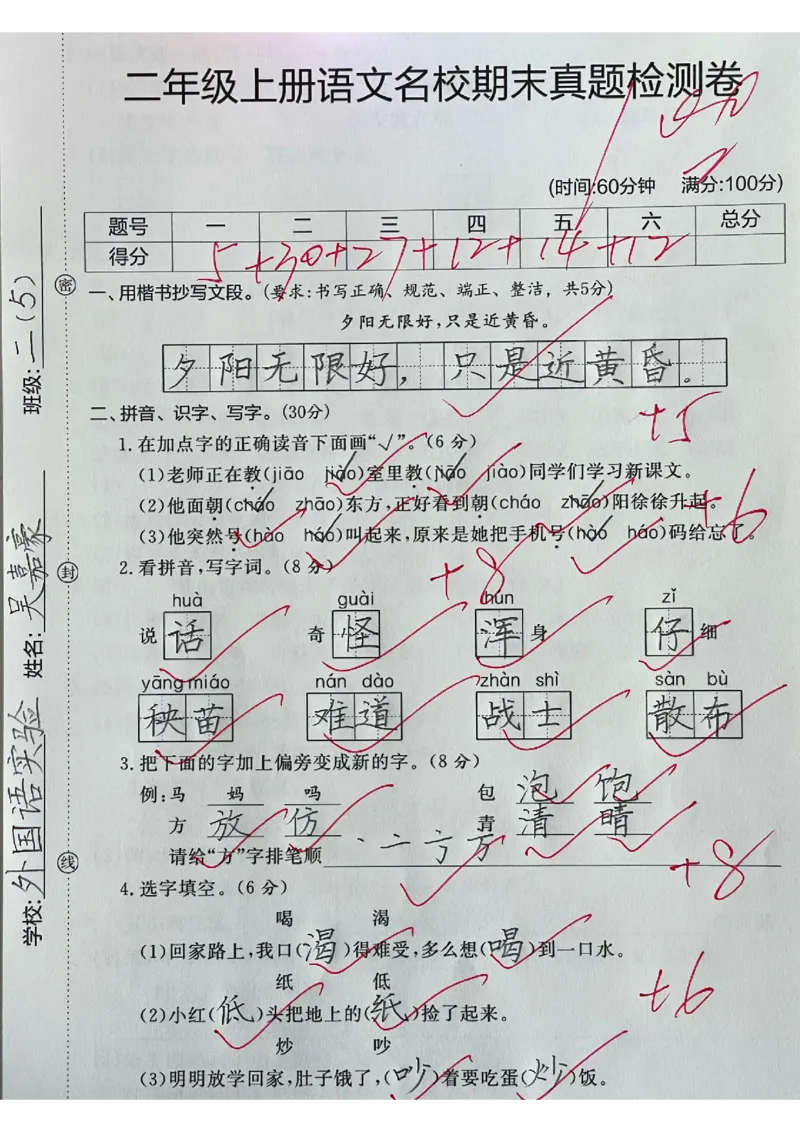 二年级上册语文名校期末真题检测卷
(时间:60分钟 满分:100分)
题号 一 二 三 四 五 六 总分
得分 5 +30 +27 +12 +14 +12
一、用楷书抄写文段。(要求:书写正确、规范、端正、整洁，共5分)
夕阳无限好,只是近黄昏。
夕阳无限好，只是近黄昏。
+5
二、拼音、识字、写字。(30分)
1.在加点字的正确读音下面画“√”。(6分)
(1)老师正在教(jiāo jiào)室里教(jiāo jiào)同学们学习新课文。
(2)他面朝(cháo zhāo)东方,正好看到朝(cháo zhāo)阳徐徐升起。
+6
(3)他突然号(hào háo)叫起来,原来是她把手机号(hào háo)码给忘了。
2.看拼音,写字词。(8分)
+8
huà guài hún zǐ
说话 奇怪 浑身 仔细
yāng miáo nán dào zhàn shì sàn bù
秧苗 难道 战士 散布
3.把下面的字加上偏旁变成新的字。(8分)
例:马 妈 吗 包 泡 饱
方 放 仿 青 清 晴
请给“方”字排笔顺 丶 亠 方 方
+8
4.选字填空。(6分)
喝 渴
(1)回家路上,我口(渴)得难受,多么想(喝)到一口水。
纸 低
(2)小红(低)头把地上的(纸)捡了起来。
+6
炒 吵
(3)明明放学回家,肚子饿了,(吵)着要吃蛋(炒)饭。
学校:外国语实验 姓名:吴嘉豪 班级:二(5)
密
封
线